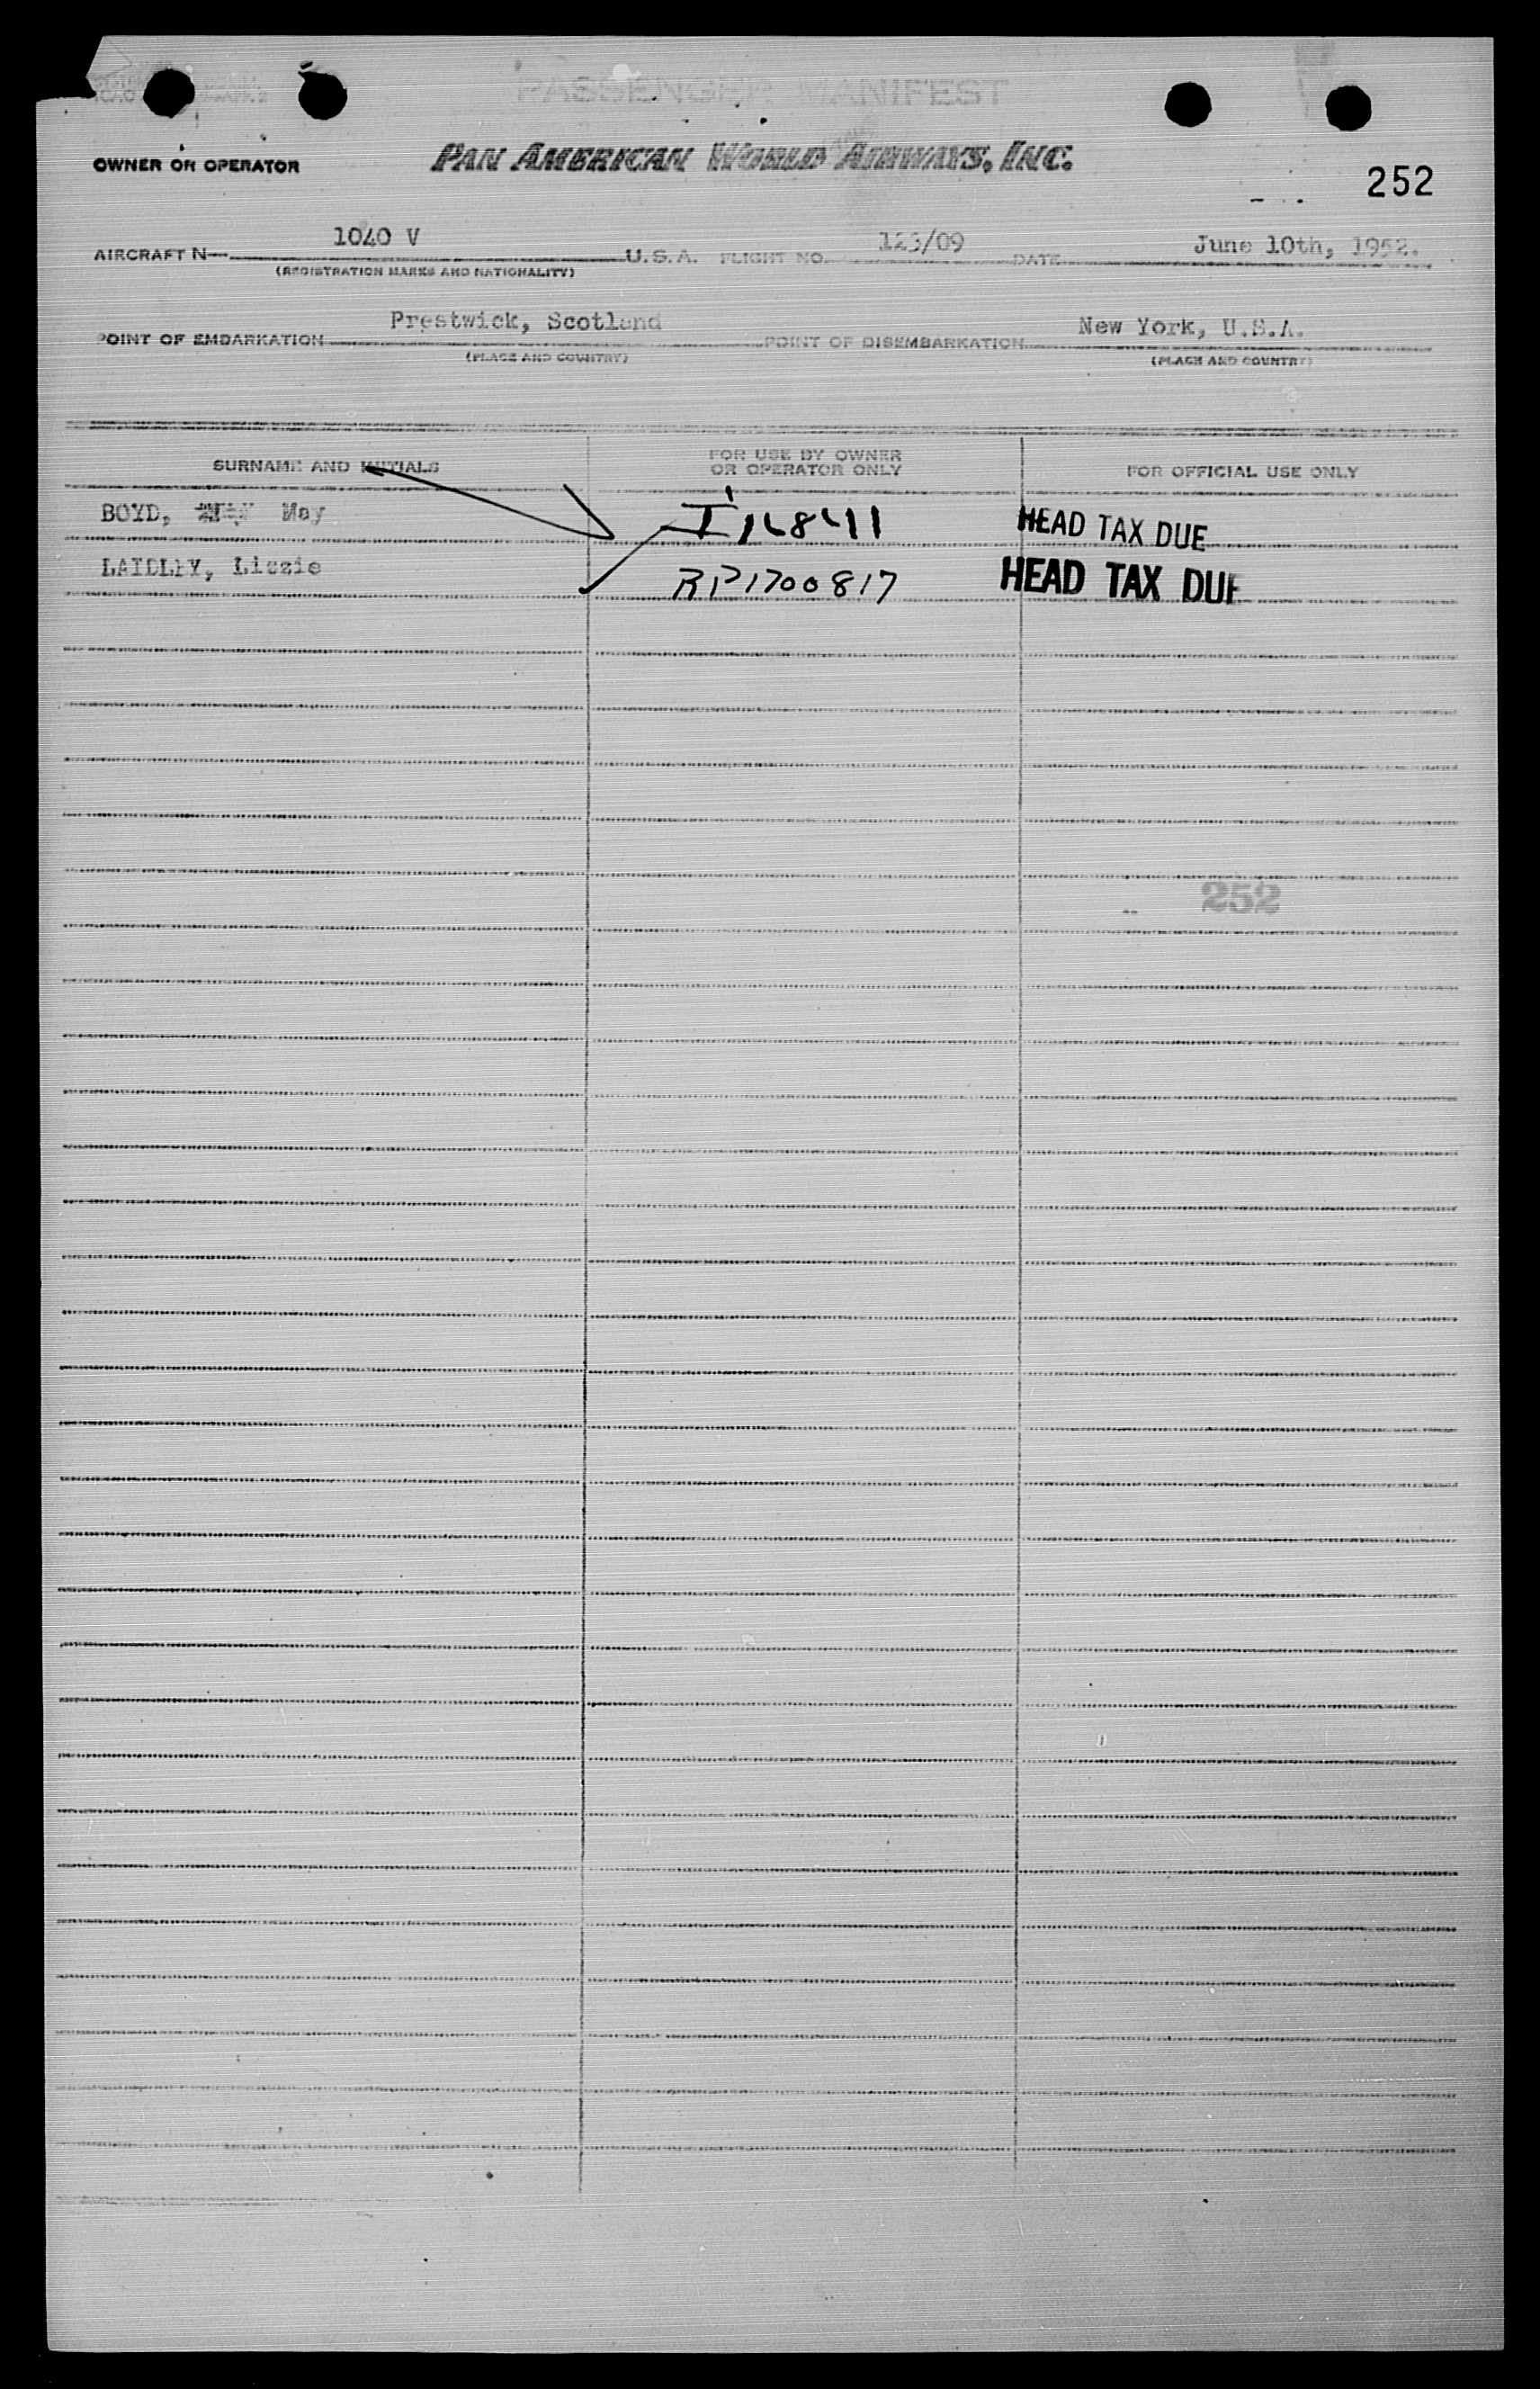 PASSENGER MANIFEST
OWNER OR OPERATOR PAN AMERICAN WORLD AIRWAYS, INC.
252
AIRCRAFT N 1040 V U.S.A. FLIGHT NO. 123/09 DATE June 10th, 1952.
(REGISTRATION MARKS AND NATIONALITY)
POINT OF EMBARKATION Prestwick, Scotland POINT OF DISEMBARKATION New York, U.S.A.
(PLACE AND COUNTRY) (PLACE AND COUNTRY)
SURNAME AND INITIALS FOR USE BY OWNER OR OPERATOR ONLY FOR OFFICIAL USE ONLY
BOYD, May HEAD TAX DUE
LAIDLEY, Lizzie RP1700817 HEAD TAX DUE
252